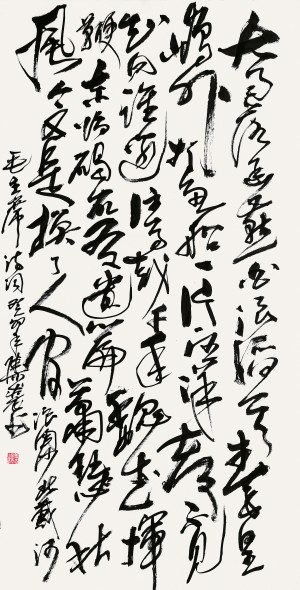 大雨落幽燕白浪滔天秦皇
岛外打鱼船一片汪洋都不见
知向谁边往事越千年魏武挥
鞭东临碣石有遗篇萧瑟秋
风今又是换了人间 浪淘沙北戴河
毛主席诗词癸卯年